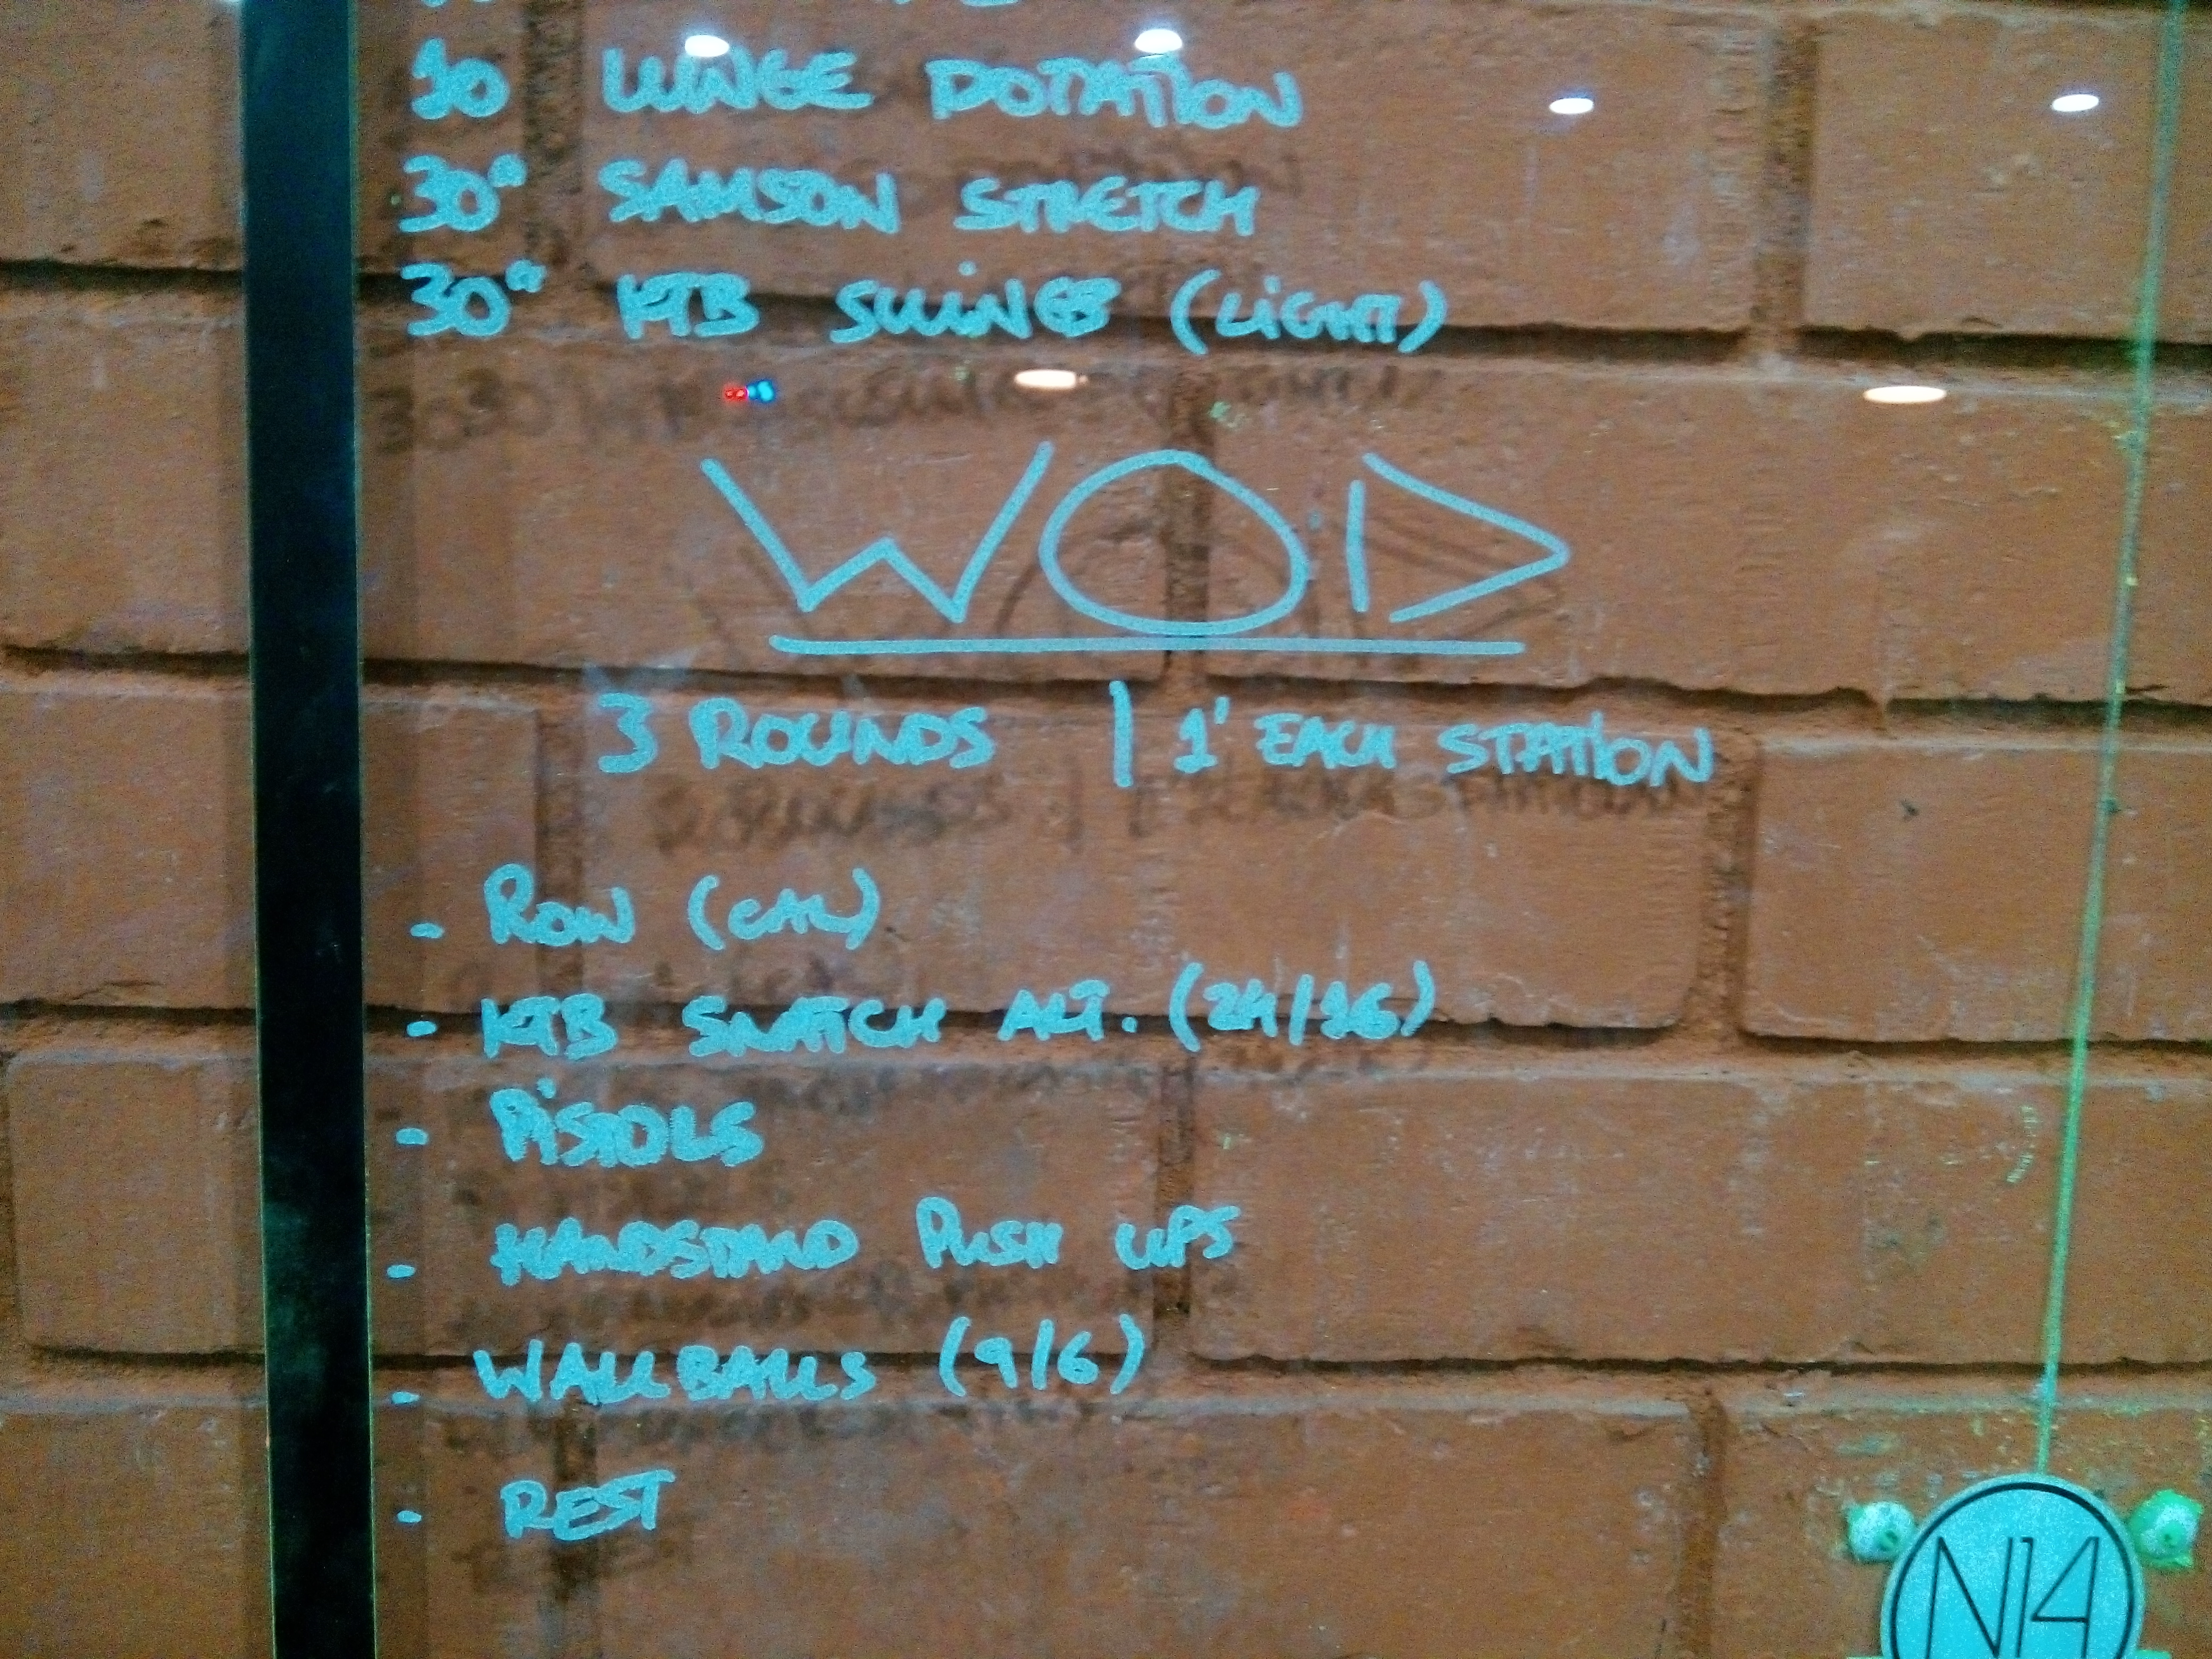 10 LUNGE ROTATION
30" SAMSON STRETCH
30" KTB SWINGS (LIGHT)
WOD
3 ROUNDS | 1' EACH STATION
- ROW (CAL)
- KTB SNATCH ALT. (24/16)
- PISTOLS
- HANDSTAND PUSH UPS
- WALLBALLS (9/6)
- REST
N14